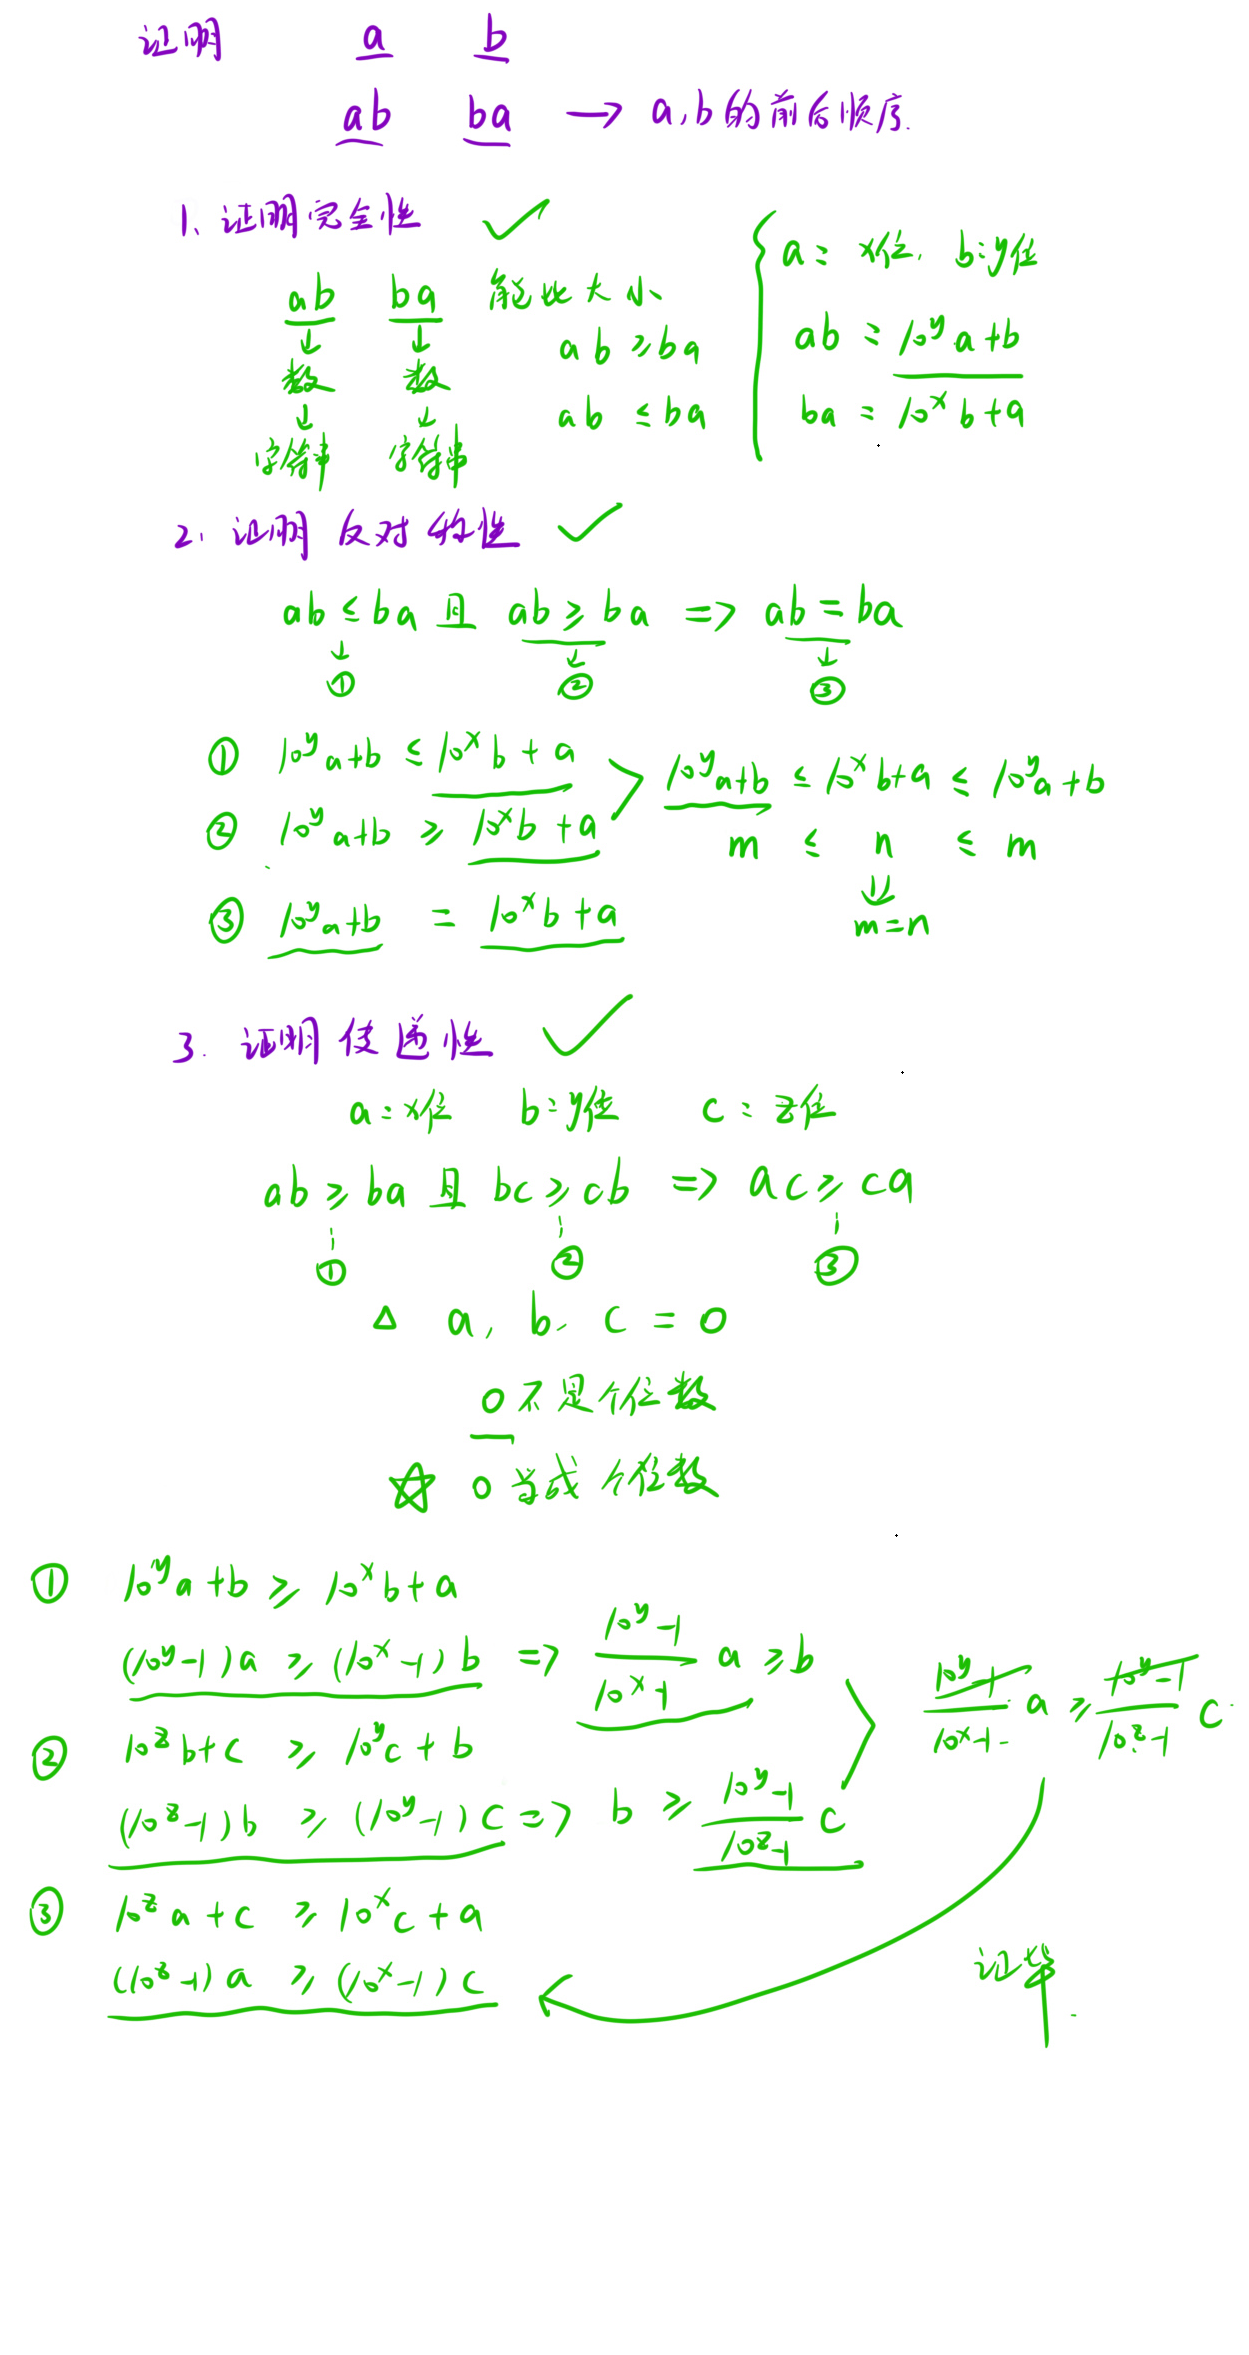 证明 a b
ab ba → a,b的前后顺序.
1、证明完全性 ✓
ab ba 能比大小
↓ ↓ ab ≥ ba
数 数 ab ≤ ba
↓ ↓
字符串 字符串
a: x位, b: y位
ab = 10^y a+b
ba = 10^x b+a
2. 证明反对称性 ✓
ab ≤ ba 且 ab ≥ ba => ab = ba
↓ ↓ ↓
① ② ③
① 10^y a+b ≤ 10^x b+a
② 10^y a+b ≥ 10^x b+a
③ 10^y a+b = 10^x b+a
10^y a+b ≤ 10^x b+a ≤ 10^y a+b
m ≤ n ≤ m
⇓
m=n
3. 证明传递性 ✓
a: x位 b: y位 c: z位
ab ≥ ba 且 bc ≥ cb => ac ≥ ca
① ② ③
△ a, b, c = 0
0不是个位数
☆ 0当成个位数
① 10^y a+b ≥ 10^x b+a
(10^y-1)a ≥ (10^x-1)b => (10^y-1)/(10^x-1) a ≥ b
② 10^z b+c ≥ 10^y c+b
(10^z-1)b ≥ (10^y-1)c => b ≥ (10^y-1)/(10^z-1) c
(10^y-1)/(10^x-1) a ≥ (10^y-1)/(10^z-1) c
③ 10^z a+c ≥ 10^x c+a
(10^z-1)a ≥ (10^x-1)c
证毕